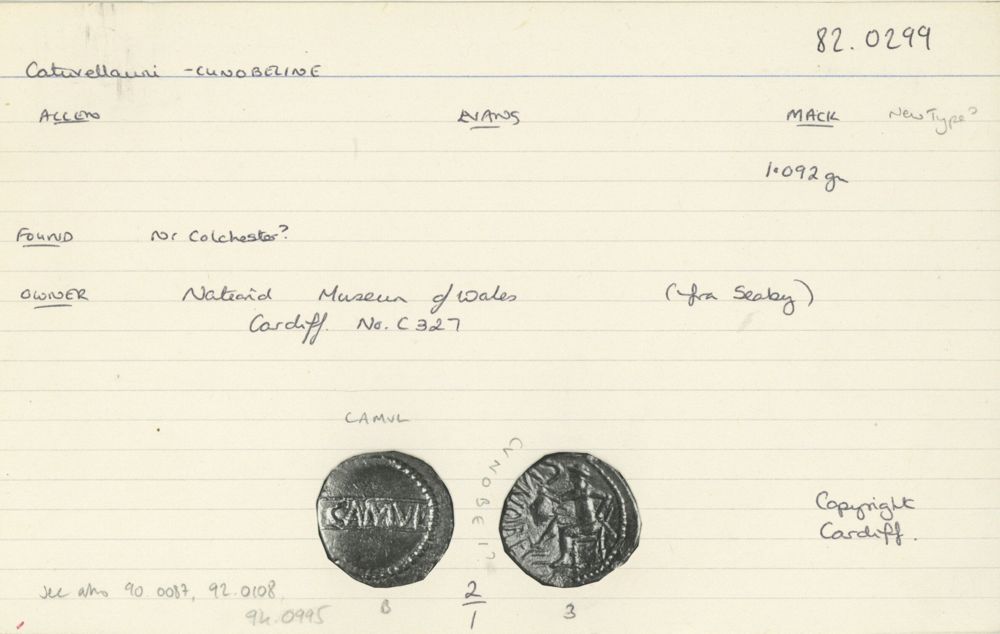 82.0299
Catuvellauni - CUNOBELINE
ALLEN EVANS MACK New Type?
1.092 gm
FOUND Nr Colchester?
OWNER National Museum of Wales (from Seaby)
Cardiff. No. C327
CAMVL
CVNOBE
CAMVL
CVNOBE
Copyright
Cardiff.
see also 90.0087, 92.0108,
94.0995
B 2/1 3